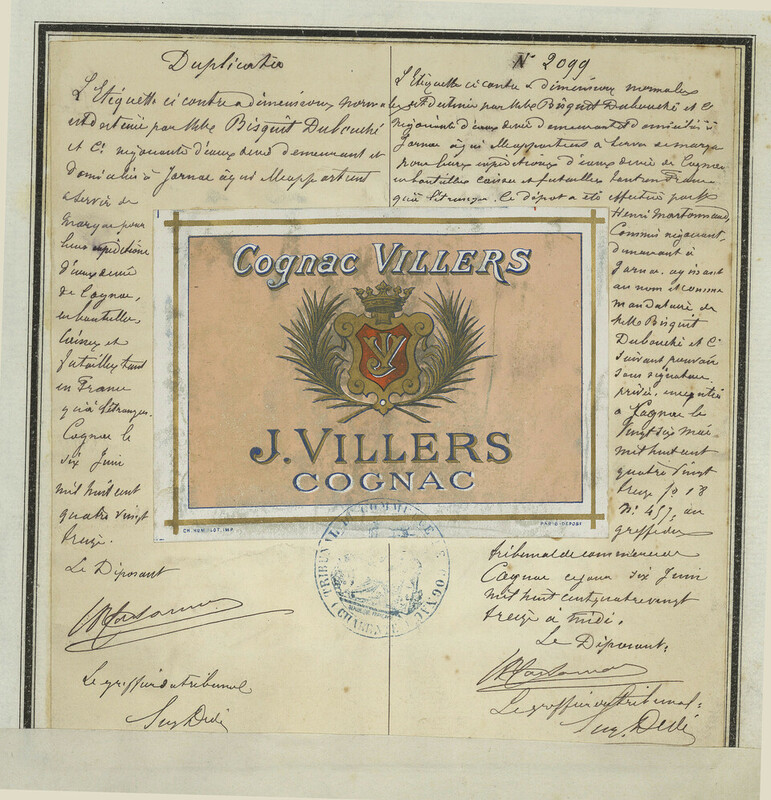 Duplicata
L'Etiquette ci contre a dimensions normales
est destinée par MMrs Bisquit Dubouché
et Cie négociants d'eaux de vie demeurant et
domiciliés à Jarnac à qui elle appartient
a servir de
marque pour
leurs expéditions
d'eaux de vie
de Cognac,
en bouteilles
Caisses et
futailles tant
en France
qu'à l'étranger.
Cognac le
six Juin
mil huit cent
quatre vingt
treize.
Le Déposant
Le greffier du tribunal
N° 2099
L'Etiquette ci contre a dimensions normales
est destinée par MMrs Bisquit Dubouché et Cie
négociants d'eaux de vie demeurant et domiciliés à
Jarnac à qui elle appartient à servir de marque
pour leurs expéditions d'eaux de vie de Cognac
en bouteilles caisses et futailles tant en France
qu'à l'étranger. Ce dépôt a été effectué par Mr
Henri Martonneau,
Commis négociant,
demeurant à
Jarnac, agissant
au nom et comme
mandataire de
MMrs Bisquit
Dubouché et Cie
suivant pouvoir
sous signature
privée, enregistrée
à Cognac le
Vingt six mai
mil huit cent
quatre vingt
treize fo 18
N° 457, au
greffe du
tribunal de commerce de
Cognac ce jour six Juin
mil huit cent quatre vingt
treize à midi.
Le Déposant:
Le greffier du tribunal:
Cognac VILLERS
JV
J. VILLERS
COGNAC
PARIS-DÉPOSÉ
TRIBUNAL DE COMMERCE DE COGNAC (CHARENTE)